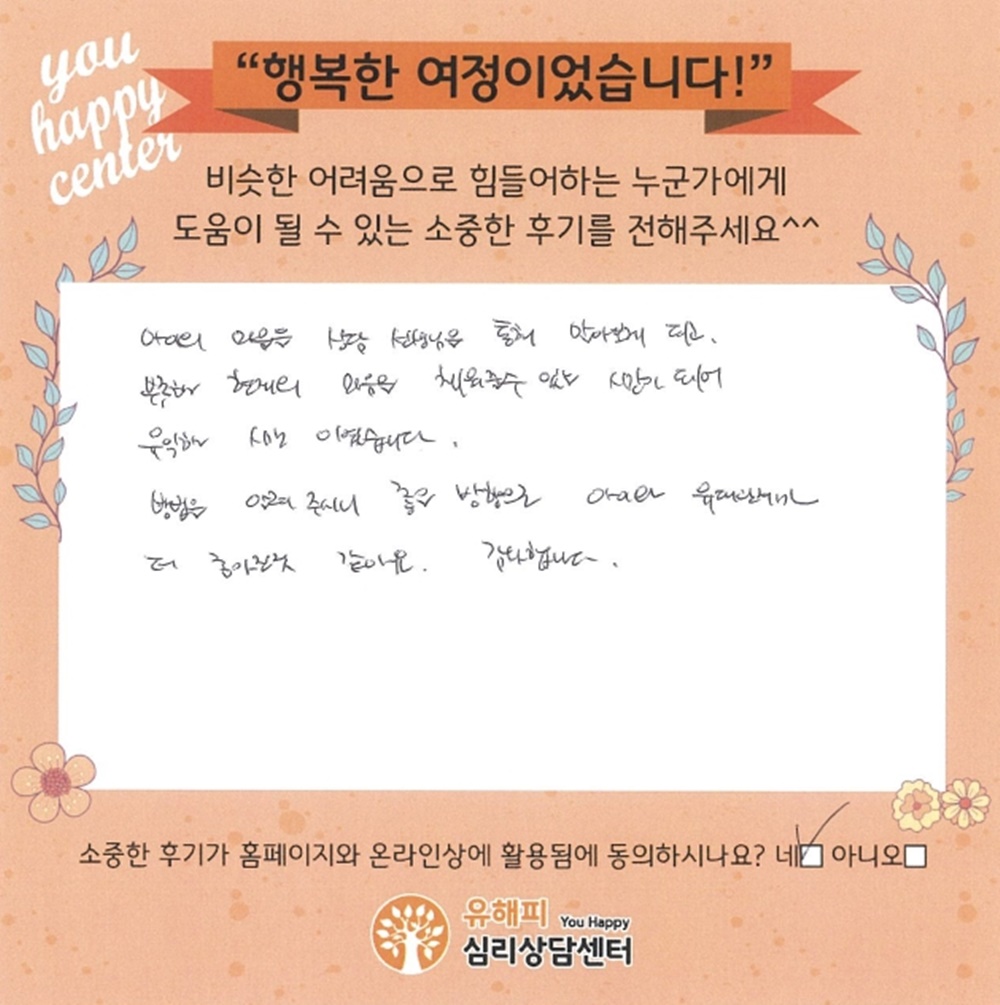 you
happy
center
“행복한 여정이었습니다!”
비슷한 어려움으로 힘들어하는 누군가에게
도움이 될 수 있는 소중한 후기를 전해주세요^^
아이의 마음을 상담 선생님을 통해 알아보게 되고.
부족한 현재의 마음을 채워줄수 있는 시간이 되어
유익한 시간 이었습니다.
방법을 알려 주시니 좋은 방향으로 아이와 유대관계가
더 좋아진듯 같아요. 감사합니다.
소중한 후기가 홈페이지와 온라인상에 활용됨에 동의하시나요? 네 아니오
유해피 You Happy
심리상담센터